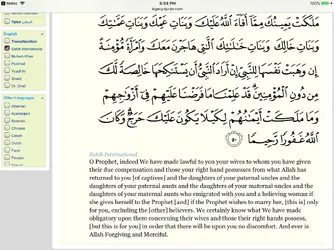 5:54 PM
legacy.quran.com
100%
English
Transliteration
Sahih International
Muhsin Khan
Pickthall
Yusuf Ali
Shakir
Dr. Ghali
Other Languages
Albanian
Azerbaijani
Bosnian
Chinese
Czech
Dutch
Farsi
Finnish
مَلَكَتْ يَمِينُكَ مِمَّآ أَفَآءَ ٱللَّهُ عَلَيْكَ وَبَنَاتِ عَمِّكَ وَبَنَاتِ عَمَّٰتِكَ
وَبَنَاتِ خَالِكَ وَبَنَاتِ خَٰلَٰتِكَ ٱلَّٰتِى هَاجَرْنَ مَعَكَ وَٱمْرَأَةً مُّؤْمِنَةً
إِن وَهَبَتْ نَفْسَهَا لِلنَّبِىِّ إِنْ أَرَادَ ٱلنَّبِىُّ أَن يَسْتَنكِحَهَا خَالِصَةً لَّكَ
مِن دُونِ ٱلْمُؤْمِنِينَ ۗ قَدْ عَلِمْنَا مَا فَرَضْنَا عَلَيْهِمْ فِىٓ أَزْوَٰجِهِمْ
وَمَا مَلَكَتْ أَيْمَٰنُهُمْ لِكَيْلَا يَكُونَ عَلَيْكَ حَرَجٌ ۗ وَكَانَ
ٱللَّهُ غَفُورًا رَّحِيمًا ٥٠
Sahih International
O Prophet, indeed We have made lawful to you your wives to whom you have given
their due compensation and those your right hand possesses from what Allah has
returned to you [of captives] and the daughters of your paternal uncles and the
daughters of your paternal aunts and the daughters of your maternal uncles and the
daughters of your maternal aunts who emigrated with you and a believing woman if
she gives herself to the Prophet [and] if the Prophet wishes to marry her, [this is] only
for you, excluding the [other] believers. We certainly know what We have made
obligatory upon them concerning their wives and those their right hands possess,
[but this is for you] in order that there will be upon you no discomfort. And ever is
Allah Forgiving and Merciful.